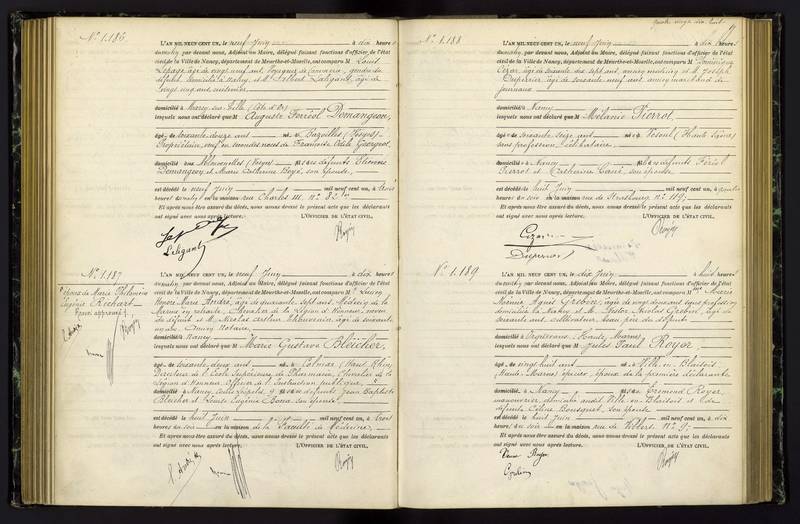 Nº 1.186
L'AN MIL NEUF CENT UN, le neuf Juin à dix heures
du matin, par devant nous, Adjoint au Maire, délégué faisant fonctions d'officier de l'état
civil de la Ville de Nancy, département de Meurthe-et-Moselle, ont comparu M. Louis
Lepage, âgé de vingt neuf ans, gendre du
défunt, domicilié à Nancy, et M. Albert Laligant, âgé de
vingt cinq ans,
domicilié à Marcy-sur-Tille (Côte d'Or)
lesquels nous ont déclaré que M. Auguste Ferréol Domangeon,
âgé de soixante douze ans né à Bazoilles (Vosges)
Propriétaire, veuf en secondes noces de Françoise Odile Georgeot,
domicilié à (Vosges) fils des défunts Etienne
Domangeon et Marie Catherine Boyé, son épouse,
est décédé le neuf Juin mil neuf cent un, à trois
heures du matin en la maison rue Charles III, nº 82 bis
Et après nous être assuré du décès, nous avons dressé le présent acte que les déclarants
ont signé avec nous après lecture. L'OFFICIER DE L'ÉTAT CIVIL,
Laligant
Nº 1.187
épouse de Marie Philomène
Eugénie Richart
L'AN MIL NEUF CENT UN, le neuf Juin à dix heures
du matin, par devant nous, Adjoint au Maire, délégué faisant fonctions d'officier de l'état
civil de la Ville de Nancy, département de Meurthe-et-Moselle, ont comparu M. Louis
Honoré Marie André, âgé de quarante sept ans, Médecin de la
Marine en retraite, Chevalier de la Légion d'Honneur, neveu
du défunt et M. Nicolas Arthur Thouvenin, âgé de soixante
un ans, ancien Notaire,
domiciliés à Nancy
lesquels nous ont déclaré que M. Marie Gustave Bleicher,
âgé de soixante deux ans né à Colmar (Haut Rhin)
Directeur de l'École Supérieure de Pharmacie, Chevalier de la
Légion d'Honneur, Officier de l'Instruction publique,
domicilié à Nancy, Cours Léopold, 9 fils des défunts Jean Baptiste
Bleicher et Louise Eugénie son épouse,
est décédé le huit Juin mil neuf cent un, à trois
heures du soir en la maison de la Faculté de Médecine,
Et après nous être assuré du décès, nous avons dressé le présent acte que les déclarants
ont signé avec nous après lecture. L'OFFICIER DE L'ÉTAT CIVIL,
Nº 1.188
L'AN MIL NEUF CENT UN, le neuf Juin à dix heures
du matin, par devant nous, Adjoint au Maire, délégué faisant fonctions d'officier de l'état
civil de la Ville de Nancy, département de Meurthe-et-Moselle, ont comparu M. Dominique
Cézar, âgé de soixante dix sept ans, et M. Joseph
Duperier, âgé de soixante neuf ans, ancien marchand de
journaux
domiciliés à Nancy
lesquels nous ont déclaré que M. Mélanie Pierrot,
âgée de soixante seize ans née à Vesoul (Haute Saône)
sans profession, célibataire,
domiciliée à Nancy fille des défunts Féréol
Pierrot et Catherine son épouse,
est décédée le huit Juin mil neuf cent un, à quatre
heures du soir en la maison rue de Strasbourg nº 119,
Et après nous être assuré du décès, nous avons dressé le présent acte que les déclarants
ont signé avec nous après lecture. L'OFFICIER DE L'ÉTAT CIVIL,
Cézar
Duperier
Nº 1.189
L'AN MIL NEUF CENT UN, le dix Juin à huit heures
du matin, par devant nous, Adjoint au Maire, délégué faisant fonctions d'officier de l'état
civil de la Ville de Nancy, département de Meurthe-et-Moselle, ont comparu Mme Marie
Agnès Grebin, âgée de vingt deux ans, sans profession,
domiciliée à Nancy et M. Nicolas Grebin, âgé de
soixante ans, cultivateur, beau père du défunt,
domicilié à (Haute Marne)
lesquels nous ont déclaré que M. Jules Paul Royer
âgé de vingt huit ans né à Ville-en-Blaisois
Haute Marne, époux de la première déclarante
domicilié à Nancy fils de Royer,
manouvrier, domicilié audit Ville-en-Blaisois et de
défunte Céline Bousquet, son épouse
est décédé le huit Juin mil neuf cent un, à dix
heures du soir en la maison rue de nº 9
Et après nous être assuré du décès, nous avons dressé le présent acte que les déclarants
ont signé avec nous après lecture. L'OFFICIER DE L'ÉTAT CIVIL,
Royer